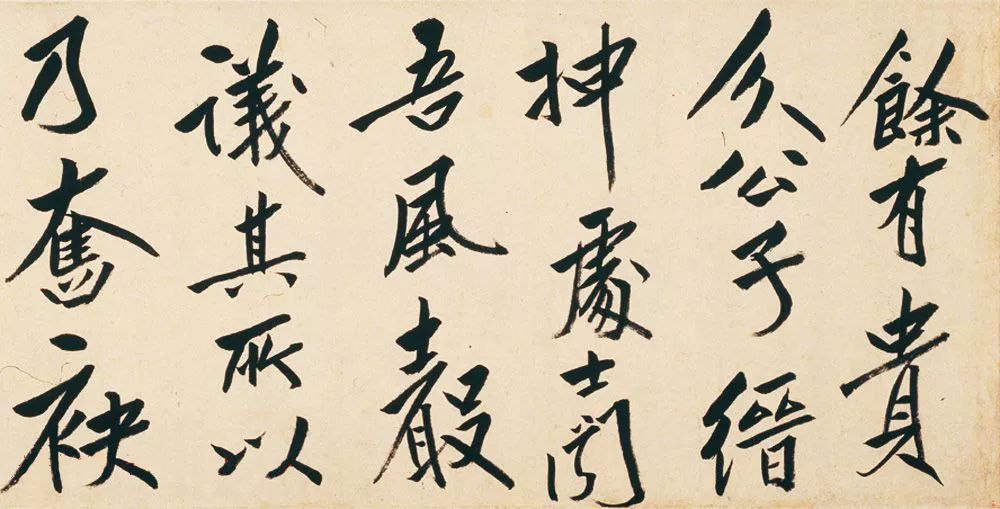 餘有貴
介公子縉
紳處士聞
吾風聲
議其所以
乃奮袂